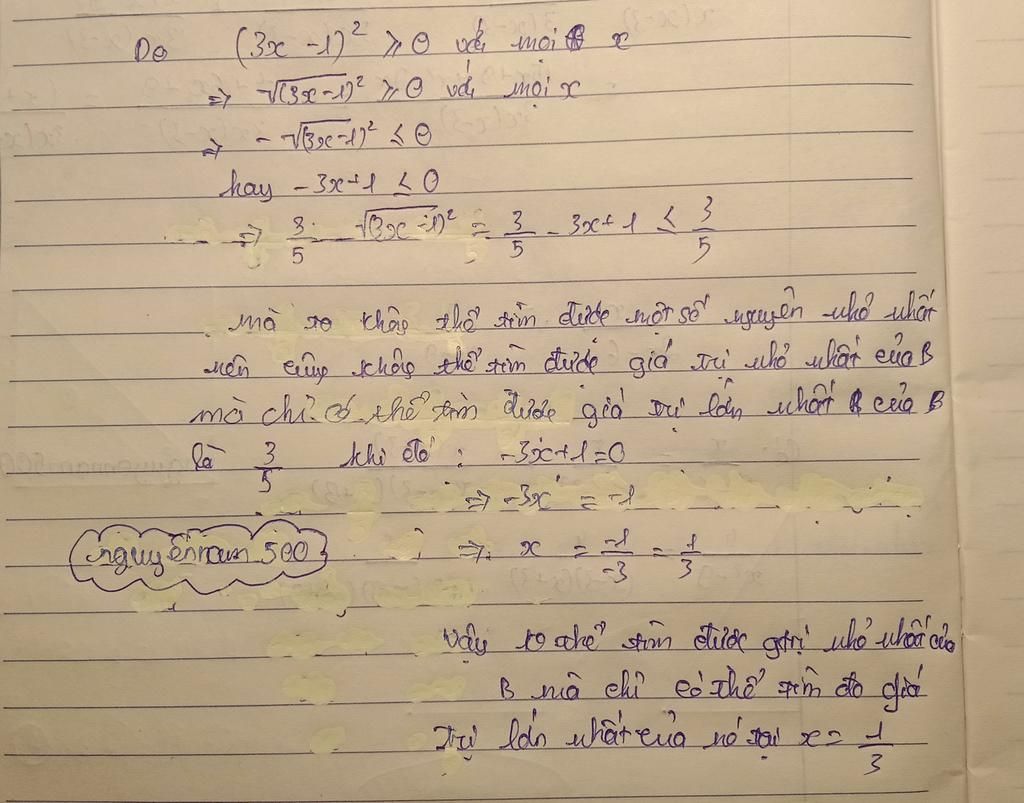 Do (3x - 1)² ≥ 0 với mọi x
⇒ √(3x-1)² ≥ 0 với mọi x
⇒ - √(3x-1)² ≤ 0
hay - 3x+1 ≤ 0
⇒ 3/5 - √(3x-1)² = 3/5 - 3x+1 ≤ 3/5
mà ta không thể tìm được một số nguyên nhỏ nhất
nên cũng không thể tìm được giá trị nhỏ nhất của B
mà chỉ có thể tìm được giá trị lớn nhất của B
là 3/5 khi đó : -3x+1=0
⇒ -3x = -1
nguyễn nam 500 ⇒ x = -1/-3 = 1/3
Vậy ko thể tìm được gtrị nhỏ nhất của
B mà chỉ có thể tìm đc giá
trị lớn nhất của nó tại x = 1/3